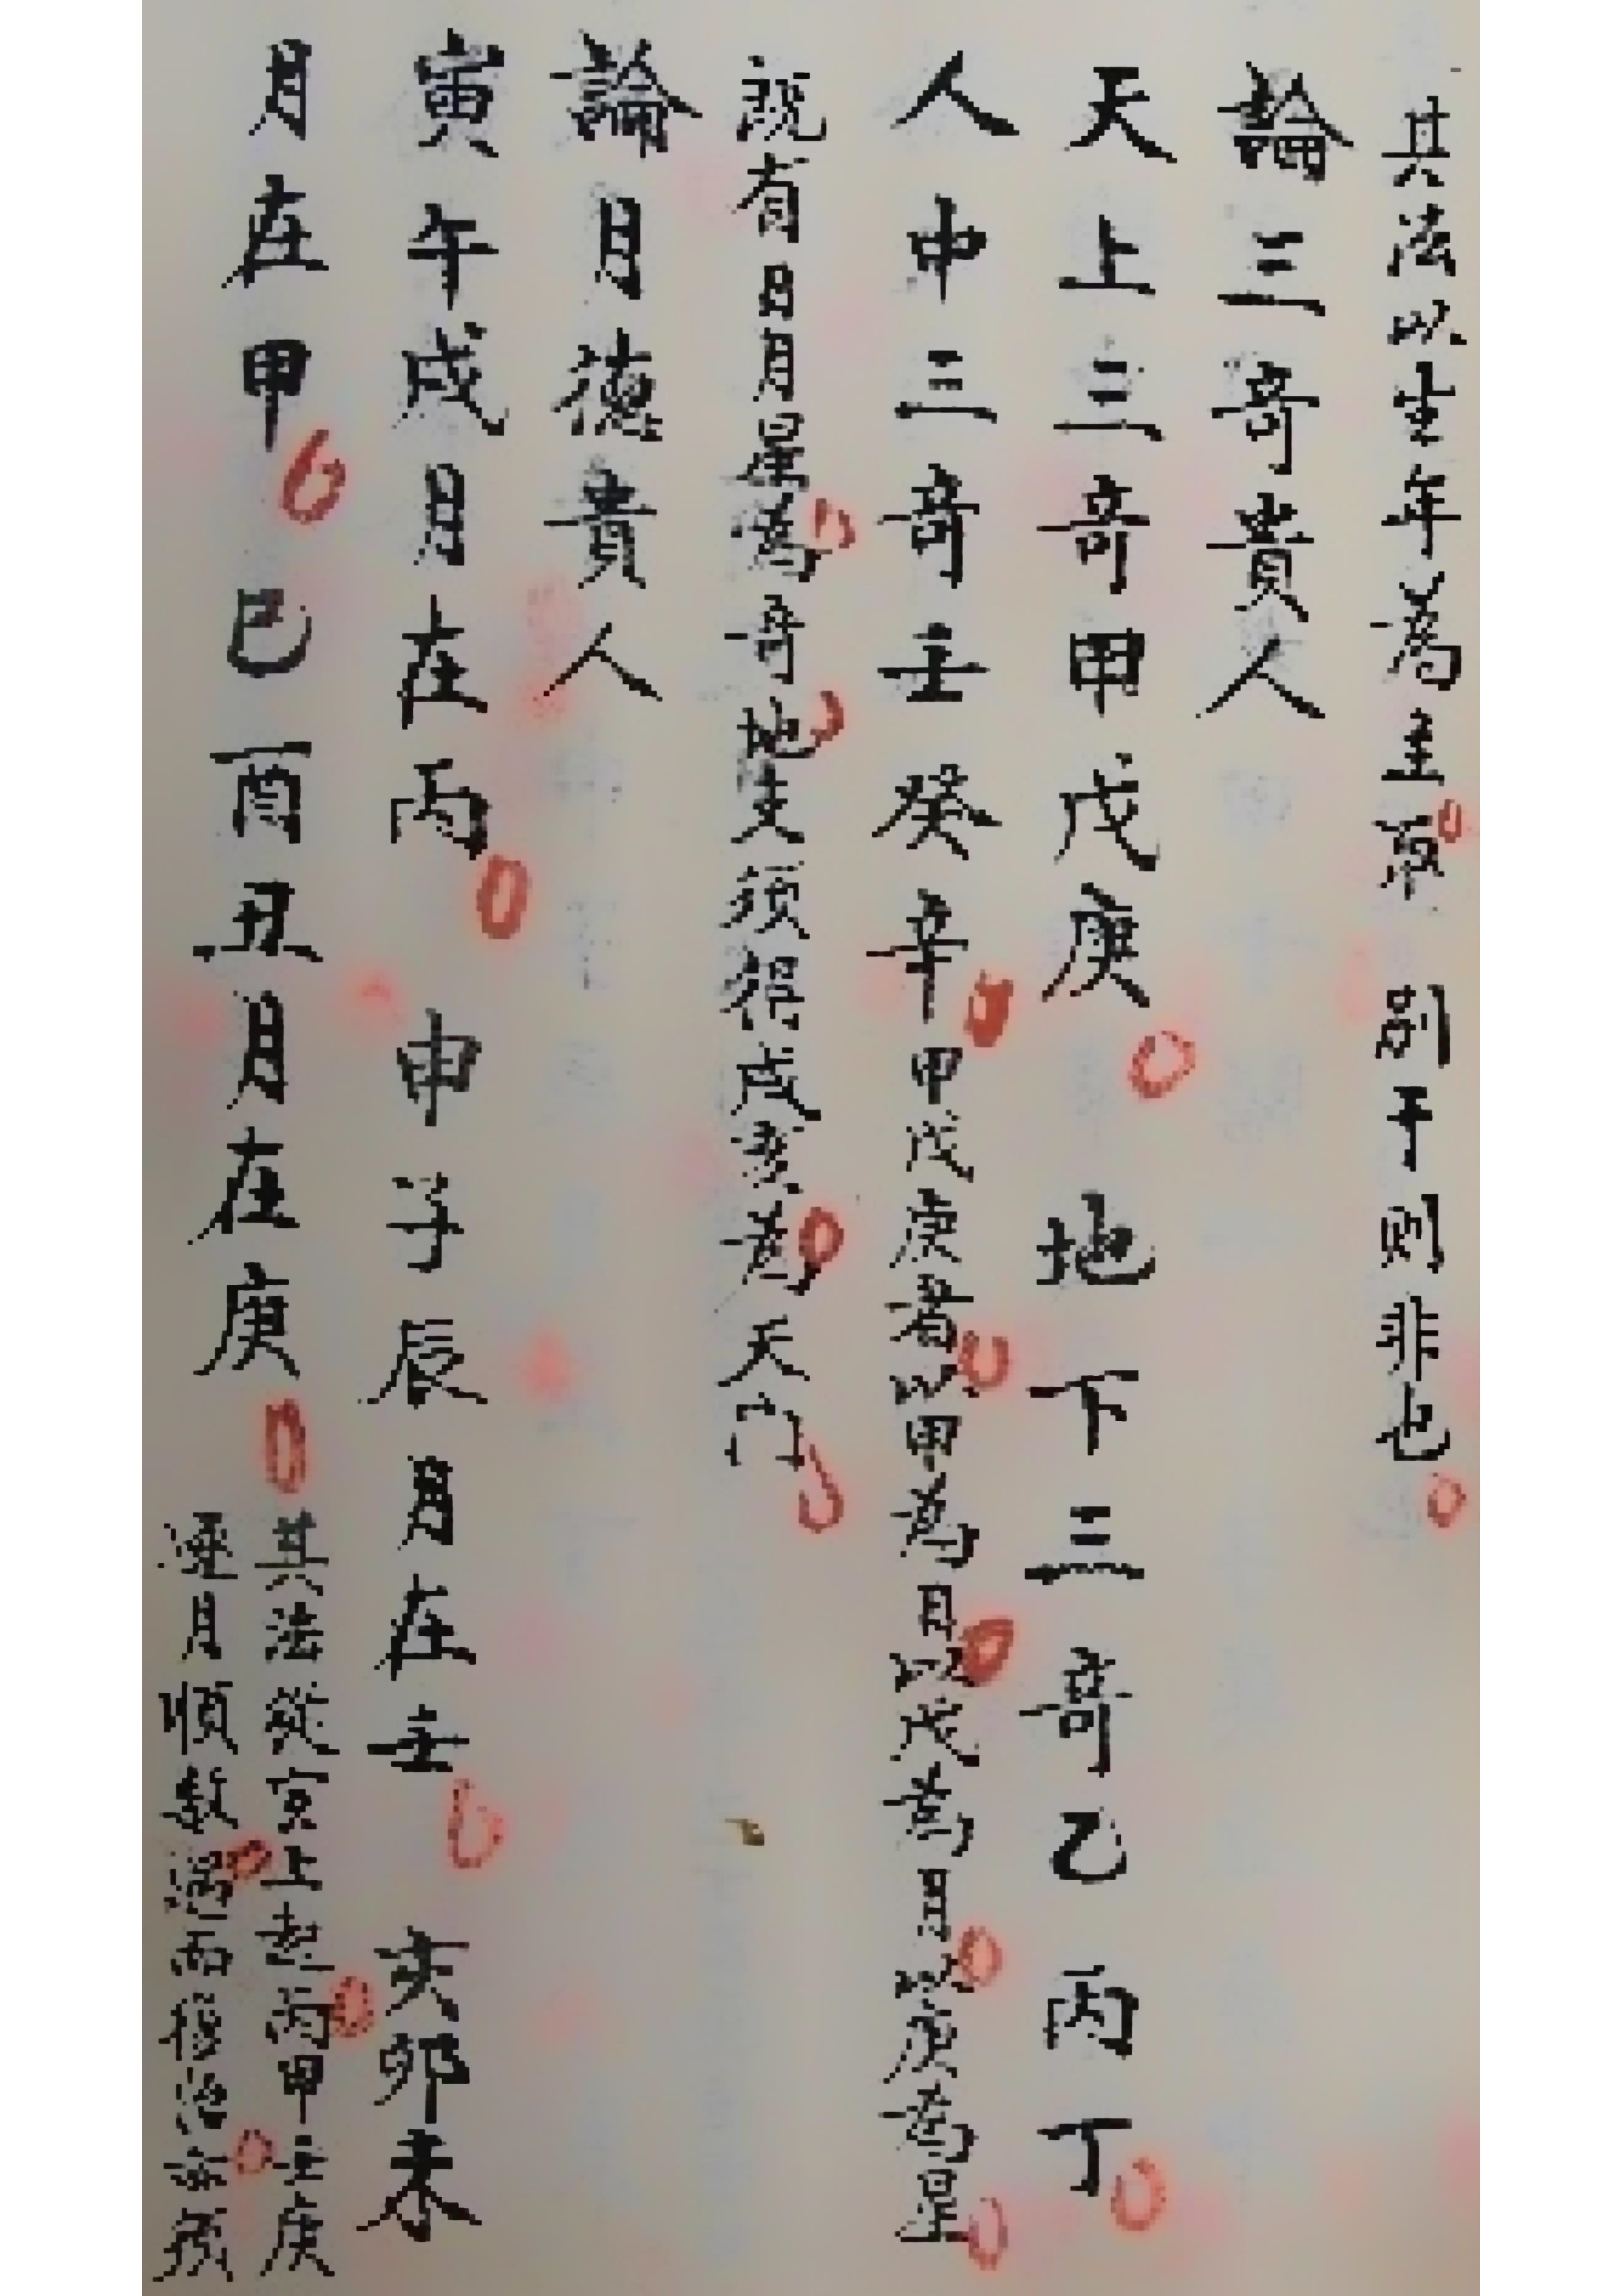 其法以生年為主取 別干則非也
論三奇貴人
天上三奇甲戊庚 地下三奇乙丙丁
人中三奇壬癸辛甲戊庚者以甲為日以戊為月以庚為星
既有日月星為奇地支須得戌亥為天門
論月德貴人
寅午戌月在丙 申子辰月在壬 亥卯未
月在甲 巳酉丑月在庚
其法從寅上起丙甲壬庚
逐月順數